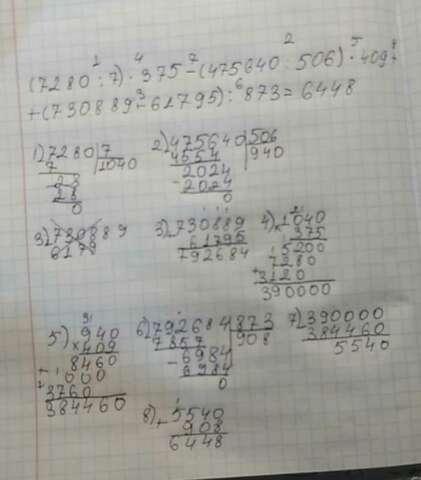 (7280:7)·375-(475640:506)·409+
+(730889+61795):873=6448
1) 7280 7
7 1040
28
28
0
2) 475640 506
4554 940
2024
- 2024
0
3) 730889
6179
3) 730889
61795
792684
4) 1040
375
5200
7280
+ 3120
390000
5) 940
× 409
8460
+ 000
3760
384460
6) 792684 873
7857 908
- 6984
6984
0
7) 390000
384460
5540
8) 5540
+ 908
6448